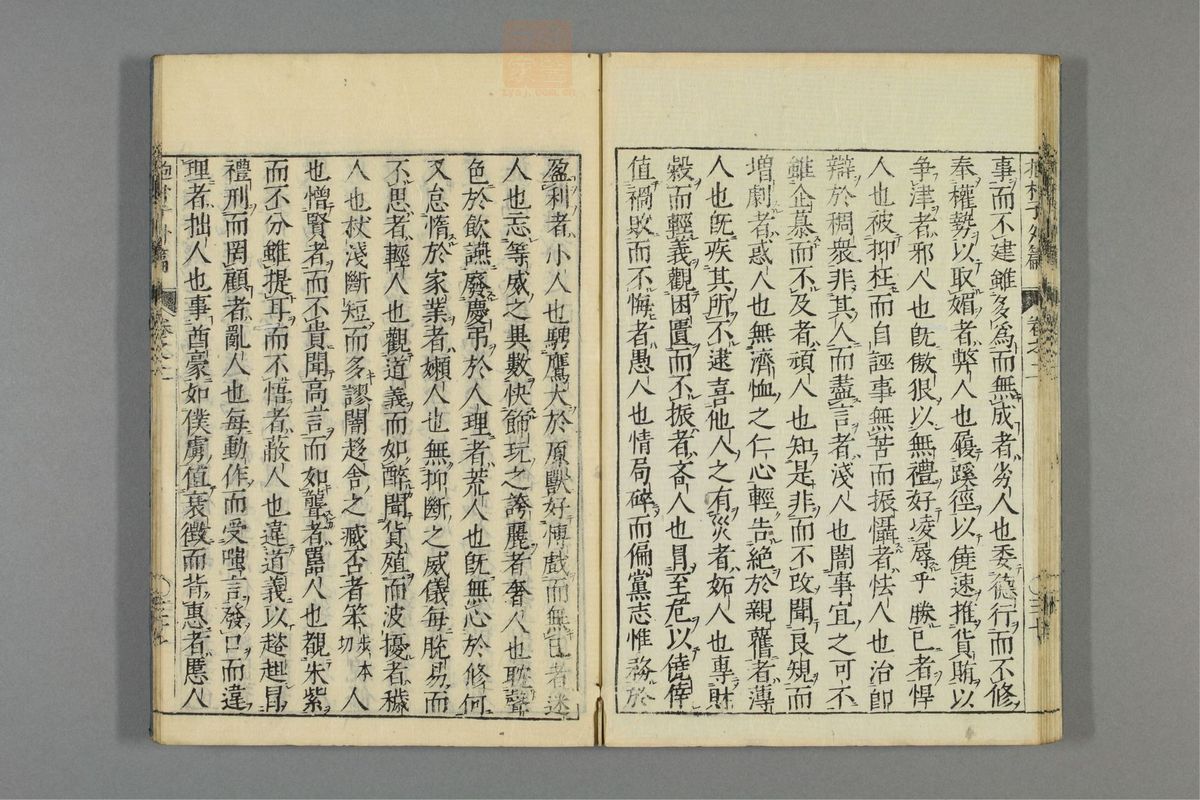 事而不建雖多爲而無成者劣人也委德行而不修
奉權勢以取媚者弊人也履蹊徑以僥速推貨賄以
爭津者邪人也既傲狠以無禮好凌辱乎勝己者悍
人也被抑枉而自誣事無苦而振懾者怯人也治卽
辯於稠衆非其人而盡言者淺人也闇事宜之可不
雖企慕而不及者頑人也知是非而不改聞良規而
增劇者惑人也無濟恤之仁心輕告絶於親舊者薄
人也既疾其所不逮喜他人之有災者妬人也專財
穀而輕義觀困匱而不振者吝人也冐至危以僥倖
值禍敗而不悔者愚人也情局碎而偏黨志惟務於
盈利者小人也騁鷹犬於原獸好愽戲而無已者迷
人也忘等威之異數快飾玩之誇麗者奢人也耽聲
色於飲讌廢慶弔於人理者荒人也既無心於修何
又怠惰於家業者嬾人也無抑斷之威儀每脫易而
不思者輕人也觀道義而如醉聞貨殖而波擾者穢
人也杖淺斷短而多謬闇趍舍之臧否者笨步本切人
也憎賢者而不貴聞高言而如聾者嚚人也覩朱紫
而不分雖提耳而不悟者蔽人也違道義以趑趄冐
禮刑而罔顧者亂人也每動作而受嗤言發口而違
理者拙人也事酋豪如僕虜值衰徵而背惠者慝人
卷之二
卷之二